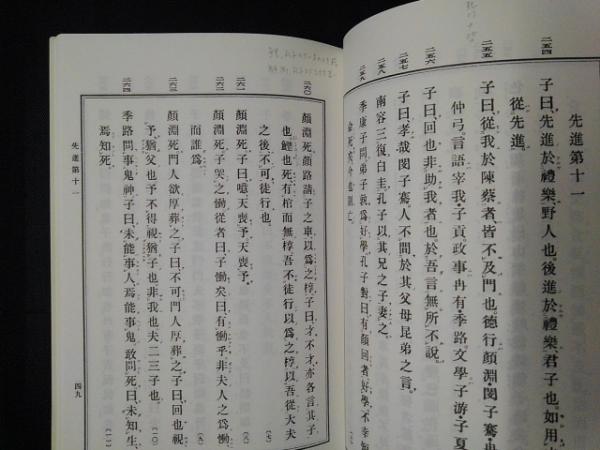 先進第十一
二五四
子曰、先進於禮樂、野人也。後進於禮樂、君子也。如用
從先進。
二五五
子曰、從我於陳蔡者、皆不及門也。德行顏淵閔子騫・冉
仲弓。言語宰我・子貢。政事冉有・季路。文學子游・子夏
二五六
子曰、回也非助我者也。於吾言無所不說。
二五七
子曰、孝哉閔子騫。人不間於其父母昆弟之言。
二五八
南容三復白圭。孔子以其兄之子妻之。
二五九
季康子問、弟子孰爲好學。孔子對曰、有顏回者、好學。不幸短
命死矣。今也則亡。
二六〇
顏淵死。顏路請子之車以爲之椁。子曰、才不才、亦各言其子
也。鯉也死、有棺而無椁。吾不徒行以爲之椁。以吾從大夫
之後、不可徒行也。
二六一
顏淵死。子曰、噫、天喪予、天喪予。
二六二
顏淵死。子哭之慟。從者曰、子慟矣。曰、有慟乎。非夫人之爲慟
而誰爲。
(九)
二六三
顏淵死。門人欲厚葬之。子曰、不可。門人厚葬之。子曰、回也視
予猶父也。予不得視猶子也。非我也。夫二三子也。
(一〇)
二六四
季路問事鬼神。子曰、未能事人、焉能事鬼。敢問死。曰、未知生、
焉知死。
(一一)
先進第十一
四九